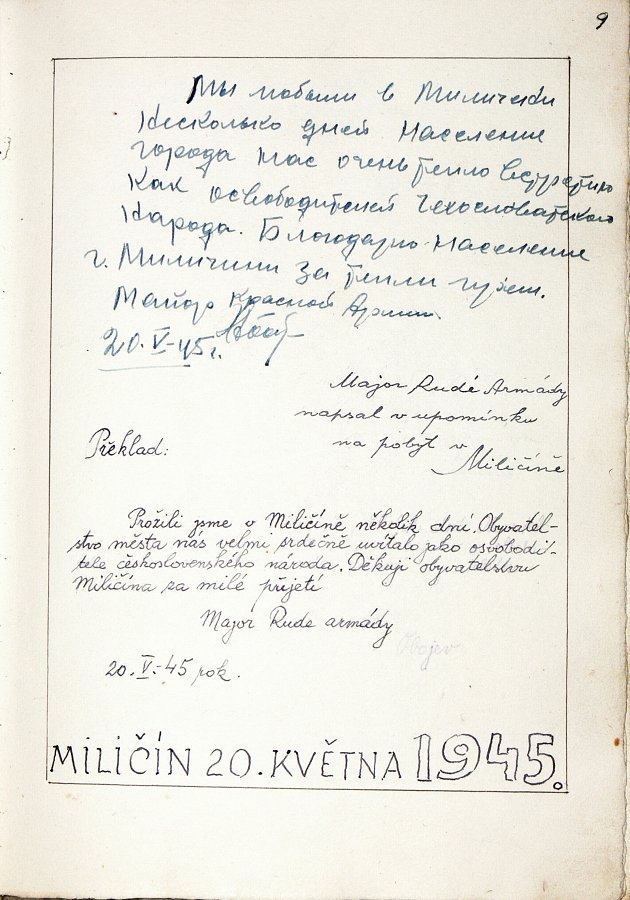 9
Мы побыли в Миличени
Несколько дней Население
города нас очень тепло встретило
Как освободителей Чехословатского
Народа. Благодарю Население
г. Миличини За тепли
Майор Красной Армии.
20.V-45г.
Major Rudé Armády
napsal v upomínku
na pobyt v
Miličíně
Překlad:
Prožili jsme v Miličíně několik dní. Obyvatel-
stvo města nás velmi srdečně uvítalo jako osvobodi-
tele československého národa. Děkuji obyvatelstvu
Miličína za milé přijetí
Major Rude armády
Obojev
20. V.-45 rok.
MILIČÍN 20. KVĚTNA 1945.